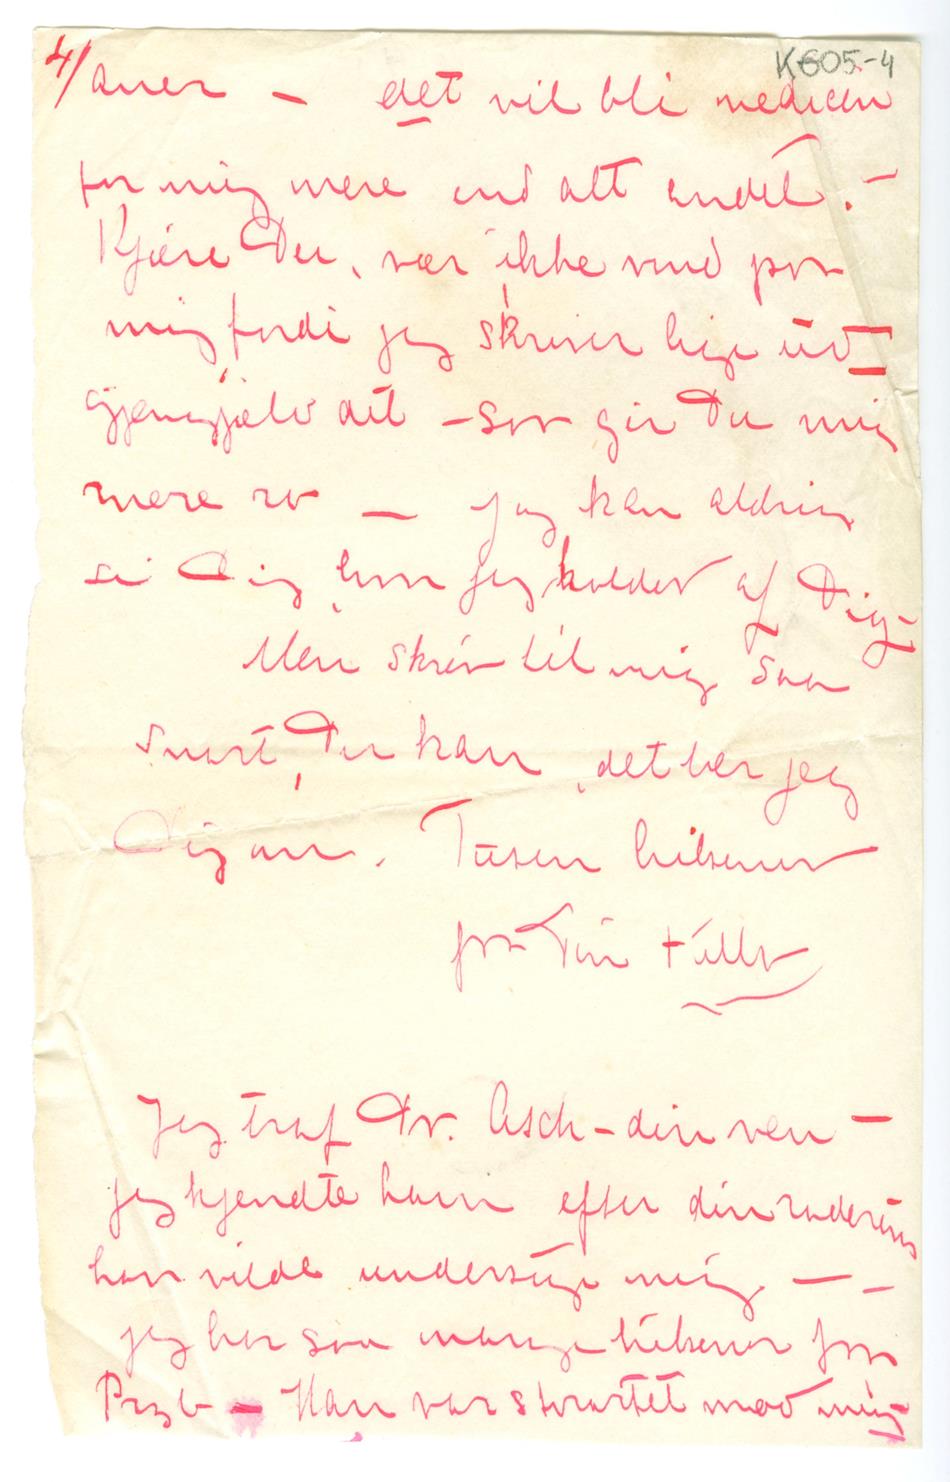 4/
K605-4
aner – det vil bli medicin
for mig mere end alt andet. –
Kjære Du, vær ikke vred paa
mig fordi jeg skriver lige ud –
gjengjæld det – saa gir Du mig
mere ro — Jeg kan aldrig
si Dig hvor jeg holder af Dig –
Men skriv til mig saa
snart Du kan, det ber jeg
Dig om. Tusen hilsener
fra Din Tulla
Jeg traf Dr. Asch – din ven –
jeg kjendte ham efter din radering
han vilde undersøge mig — –
jeg har saa mange hilsener fra
Przb – Han var storartet mod mig